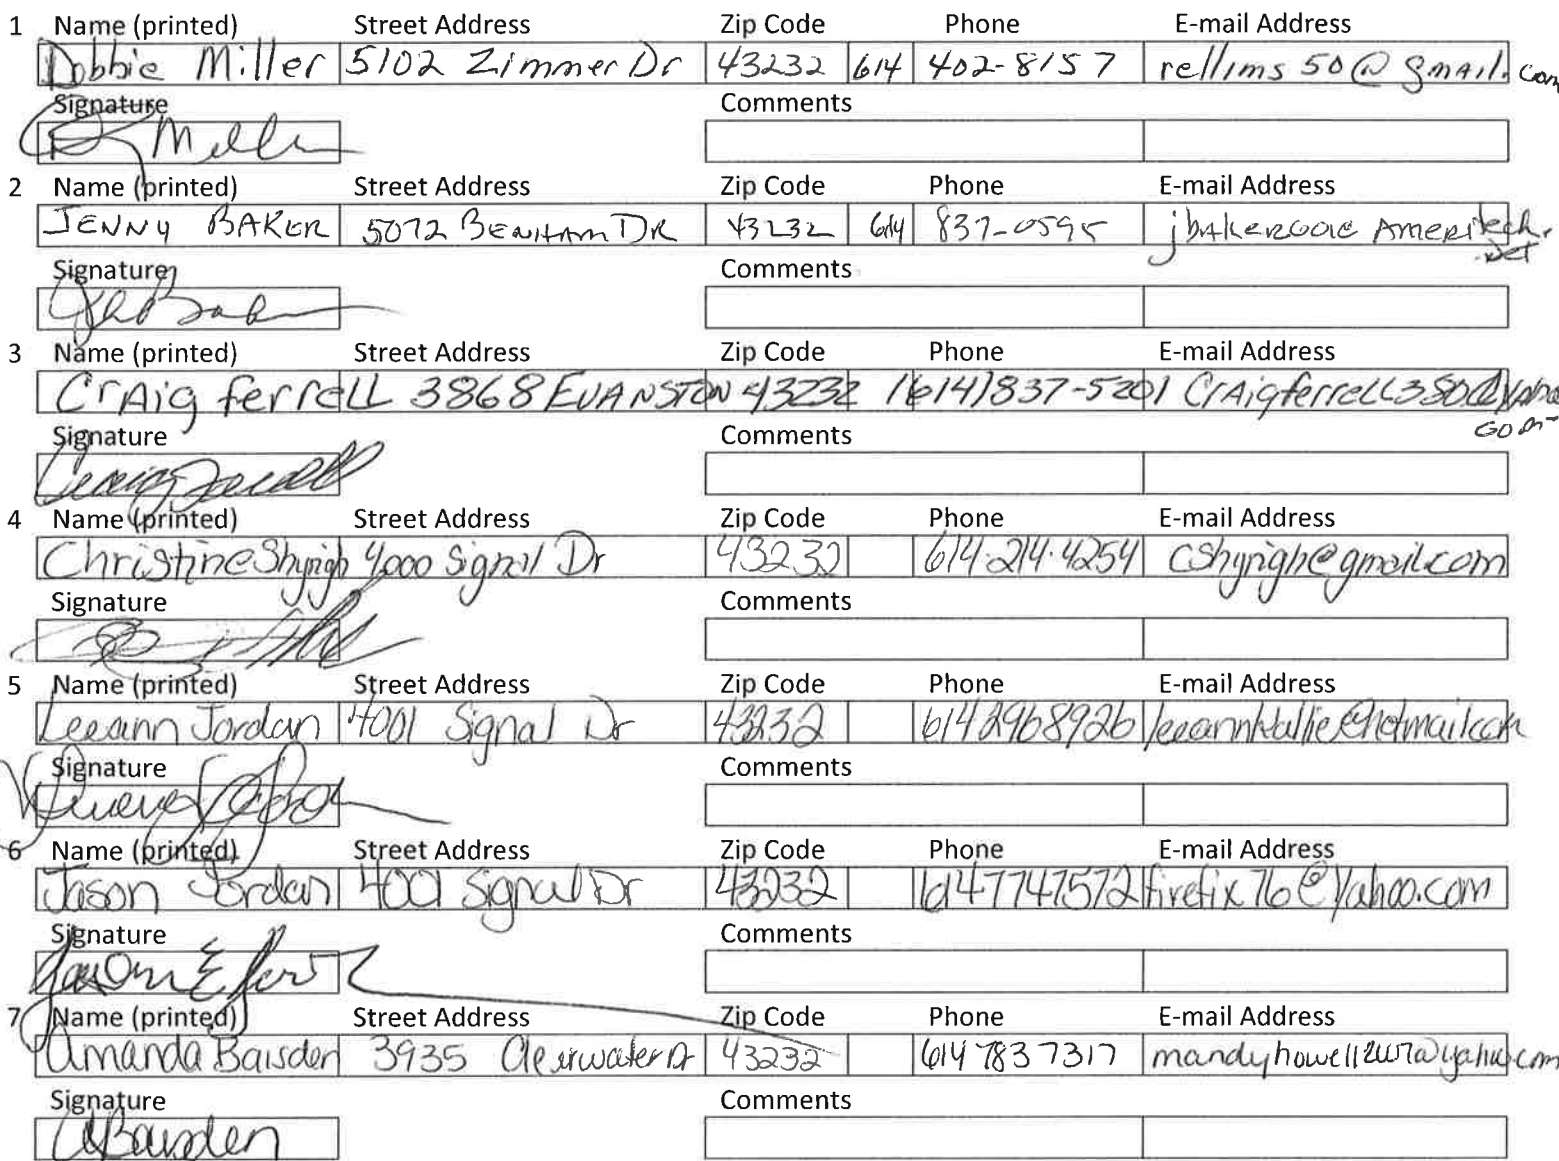 1 Name (printed) Street Address Zip Code Phone E-mail Address
Debbie Miller 5102 Zimmer Dr 43232 614 402-8157 rellims50@gmail.com
Signature Comments
2 Name (printed) Street Address Zip Code Phone E-mail Address
JENNY BAKER 5072 BENHAM DR 43232 614 837-0595 Ameritech.net
Signature Comments
3 Name (printed) Street Address Zip Code Phone E-mail Address
Craig Ferrell 3868 EVANSTON 43232 (614)837-5201
Signature Comments
4 Name (printed) Street Address Zip Code Phone E-mail Address
Christine Shyrigh 4000 Signal Dr 43232 614.214.4254 cshyrigh@gmail.com
Signature Comments
5 Name (printed) Street Address Zip Code Phone E-mail Address
Leeann Jordan 4001 Signal Dr 43232 6142968926
Signature Comments
6 Name (printed) Street Address Zip Code Phone E-mail Address
Jason Jordan 4001 Signal Dr 43232 6147747572 firefix76@yahoo.com
Signature Comments
7 Name (printed) Street Address Zip Code Phone E-mail Address
Amanda Baisden 3935 Clearwater Dr 43232 614 783 7317
Signature Comments
ABaisden